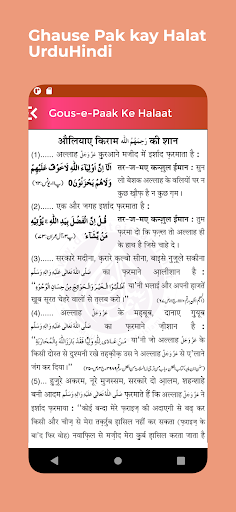 Ghause Pak kay Halat
UrduHindi
Gous-e-Paak Ke Halaat
औलियाए किराम رحمهم الله की शान
(1)...... अल्लाह عَزَّوَجَلَّ कुरआने मजीद में इर्शाद फ़रमाता है :
اَلَاۤ اِنَّ اَوْلِیَآءَ اللّٰهِ لَا خَوْفٌ عَلَیْهِمْ तर-ज-मए कन्ज़ुल ईमान : सुन
وَلَا هُمْ یَحْزَنُوْنَ लो बेशक अल्लाह के वलियों पर न
कुछ ख़ौफ़ है न कुछ ग़म ।
(2)...... एक और जगह इर्शाद फ़रमाया :
قُلْ اِنَّ الْفَضْلَ بِیَدِ اللّٰهِ ۚ یُؤْتِیْهِ तर-ज-मए कन्ज़ुल ईमान : तुम
مَنْ یَّشَآءُ फ़रमा दो कि फ़ज़्ल तो अल्लाह ही
के हाथ है जिसे चाहे दे ।
(3)...... सरकारे मदीना, क़रारे क़ल्बो सीना, बाइसे नुज़ूले सकीना
صلى الله تعالى عليه واله وسلم का फ़रमाने आलीशान है :
या'नी भलाई और अपनी हाजतें
ख़ूब सूरत चेहरे वालों से तलब करो ।
(4)...... अल्लाह عَزَّوَجَلَّ के महबूब, दानाए ग़ुयूब
صلى الله تعالى عليه واله وسلم का फ़रमाने ज़ीशान है :
या'नी जो अल्लाह عَزَّوَجَلَّ के
किसी दोस्त से दुश्मनी रखे तहक़ीक़ उस ने अल्लाह عَزَّوَجَلَّ से ए'लाने
जंग कर दिया ।
(5)... हुज़ूरे अकरम, नूरे मुजस्सम, सरकारे दो आलम, शहन्शाहे
बनी आदम صلى الله تعالى عليه واله وسلم फ़रमाते हैं कि अल्लाह عَزَّوَجَلَّ ने
इर्शाद फ़रमाया : "कोई बन्दा मेरे फ़राइज़ की अदाएगी से बढ़ कर
किसी और चीज़ से मेरा तक़र्रुब हासिल नहीं कर सकता (फ़राइज़ के
बा'द फिर वोह) नवाफ़िल से मज़ीद मेरा क़ुर्ब हासिल करता जाता है